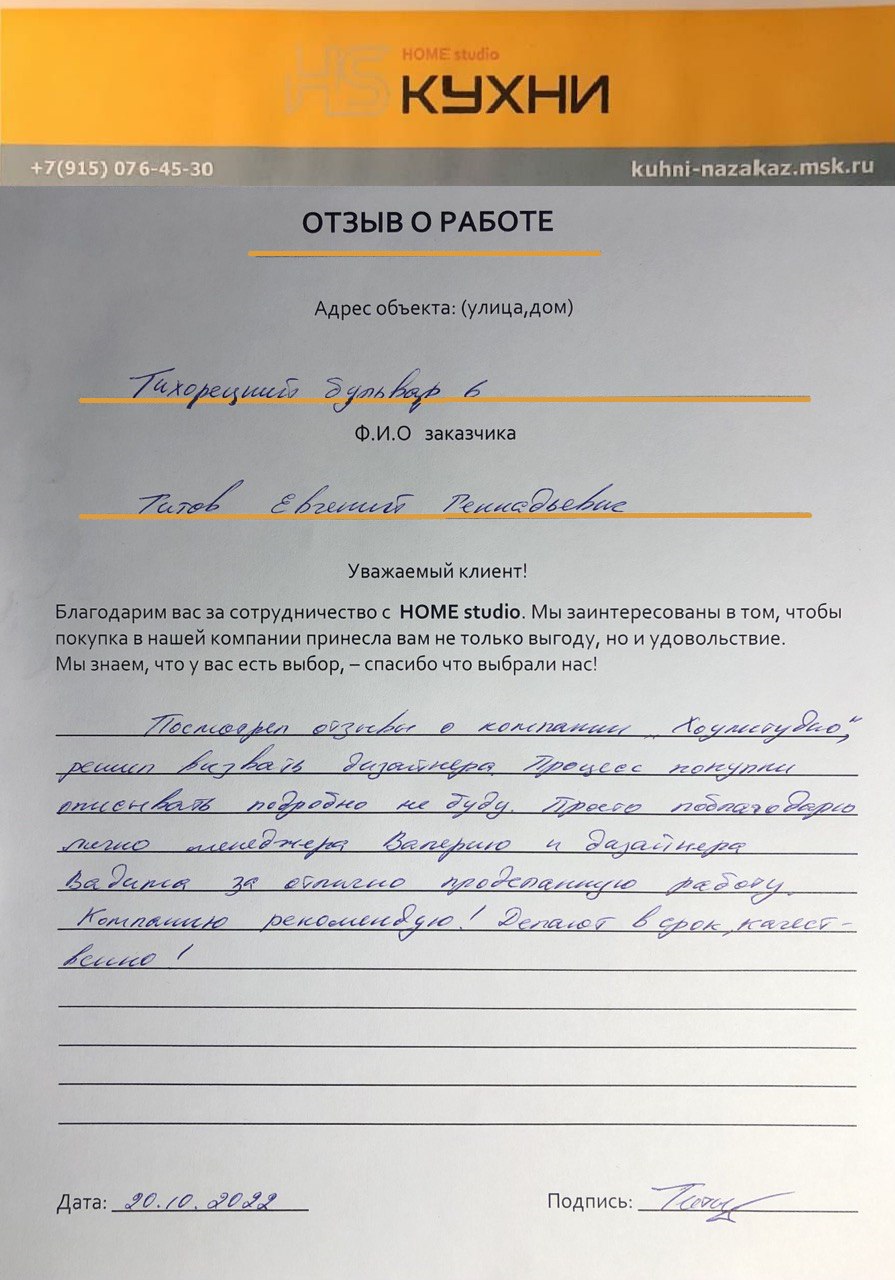 HS HOME studio
КУХНИ
+7(915) 076-45-30 kuhni-nazakaz.msk.ru
ОТЗЫВ О РАБОТЕ
Адрес объекта: (улица,дом)
Тихорецкий бульвар 6
Ф.И.О заказчика
Титов Евгений Геннадьевич
Уважаемый клиент!
Благодарим вас за сотрудничество с HOME studio. Мы заинтересованы в том, чтобы
покупка в нашей компании принесла вам не только выгоду, но и удовольствие.
Мы знаем, что у вас есть выбор, – спасибо что выбрали нас!
Посмотрел отзывы о компании „Хоумстудио",
решил вызвать дизайнера. Процесс покупки
описывать подробно не буду. Просто поблагодарю
лично менеджера Валерию и дизайнера
Вадима за отлично проделанную работу.
Компанию рекомендую! Делают в срок, качест-
венно!
Дата: 20.10.2022 Подпись: